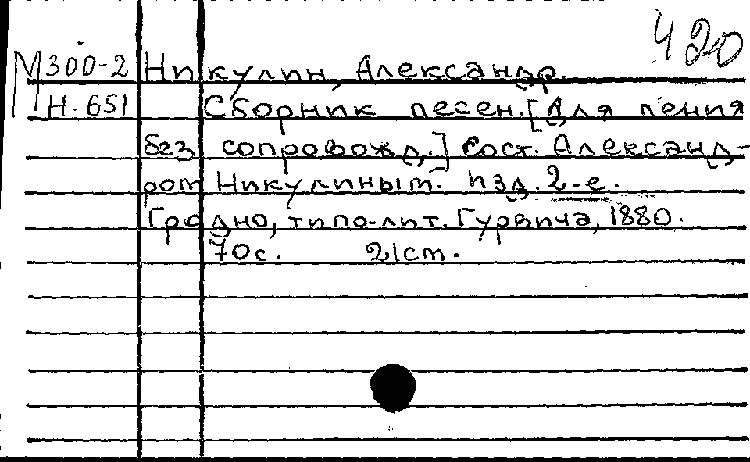 420
М300-2 Никулин, Александр.
Н-651 Сборник песен. [Для пения
без сопровожд.] Сост. Александ-
ром Никулиным. Изд. 2-е.
Гродно, типо-лит. Гурвича, 1880.
70с. 21см.